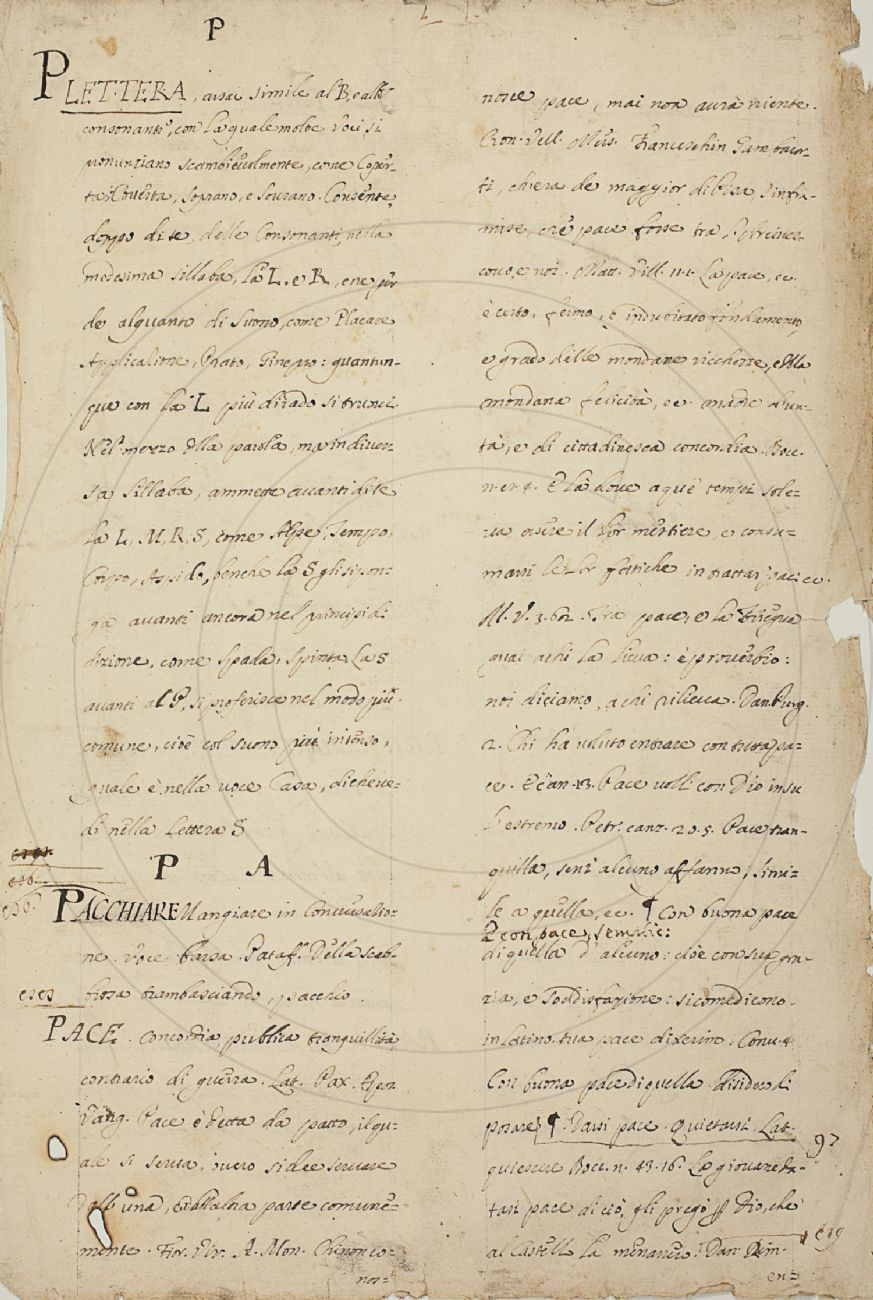 P
P LETTERA, assai simile al B, e all'
consonanti, con la quale molte voci si
pronunziano scambievolmente, come Coper-
ta, Coverta, Soprano, e Sovrano. Consente
doppo di se, delle Consonanti, nella
medesima sillaba, la L, e R, e ne per-
de alquanto di suono, come Placare
Applicazione, Prato, Ginepro: quantun-
que con la L più di rado si truovi.
Nel mezzo della parola, ma in diver-
sa sillaba, ammette avanti di se
la L, M, R, S, come Alpe, Tempo,
Corpo, Aspido, benche la S gli si pon-
ga avanti ancora nel principio di
dizione, come Spada, Spinta. La S
avanti al P, si proferisce nel modo più
comune, cioè col suono più intenso,
quale è nella voce Casa, di che ve-
di nella lettera S
P A
PACCHIARE Mangiare in Conversazio-
ne. Voce bassa. Pataff. Della scab-
biosa trambasciando, pacchio.
PACE. Concordia, publica tranquillità,
contrario di guerra. Lat. Pax. Espos.
Vang. Pace è detta da patto, il qu-
ale si serva, overo si dee servare
dall' una, e dall'altra parte comune-
mente. Fior. Vir. A. Mon. Chi non co-
nos=
nosce pace, mai non avrà niente.
Cron. Vell. Mess. Franceschin Gambacor-
ti, ch'era de maggior di Pisa, s'infra-
mise, che pace fosse tra
e noi. Matt. Vill. 11. 1. La pace, ec.
è certo, fermo, e indubitato fondamento,
e grado delle mondane ricchezze, e della
mondana felicità, ec. madre d'un-
tà, e di cittadinesca concordia. Bocc.
n. 8. 9. E là dove a què tempi sole-
va essere il lor mestiere, e consu-
marsi le lor fatiche in trattar paci ec.
M. V. 3. 602. Tra pace, e la Triegua
guai a chi la lieva: è proverbio:
noi diciamo, a chi rilieva. Dan. Purg.
2. Chi ha voluto entrare con tutta pa-
ce. E can. 13. Pace volli con Dio in su
l'estremo. Petr. canz. 20. 5. Pace tran-
quilla, senz' alcuno affanno, simi-
le a quella, ec. ¶ Con buona pace
e con pace semplic:
di quella d'alcuno: cioè con sua gra-
zia, e Soddisfazione: si come dicono.
in Latino. tua pace dixerim: Conv. 4.
Con buona pace di quella disidero di
posare. ¶. Darsi pace. Quietarsi. Lat.
quiescere Bocc. n. 43. 16. La giovane da-
tasi pace di ciò, gli pregò p Dio, che
al Castello la menassero. Dan. Rim.
en=